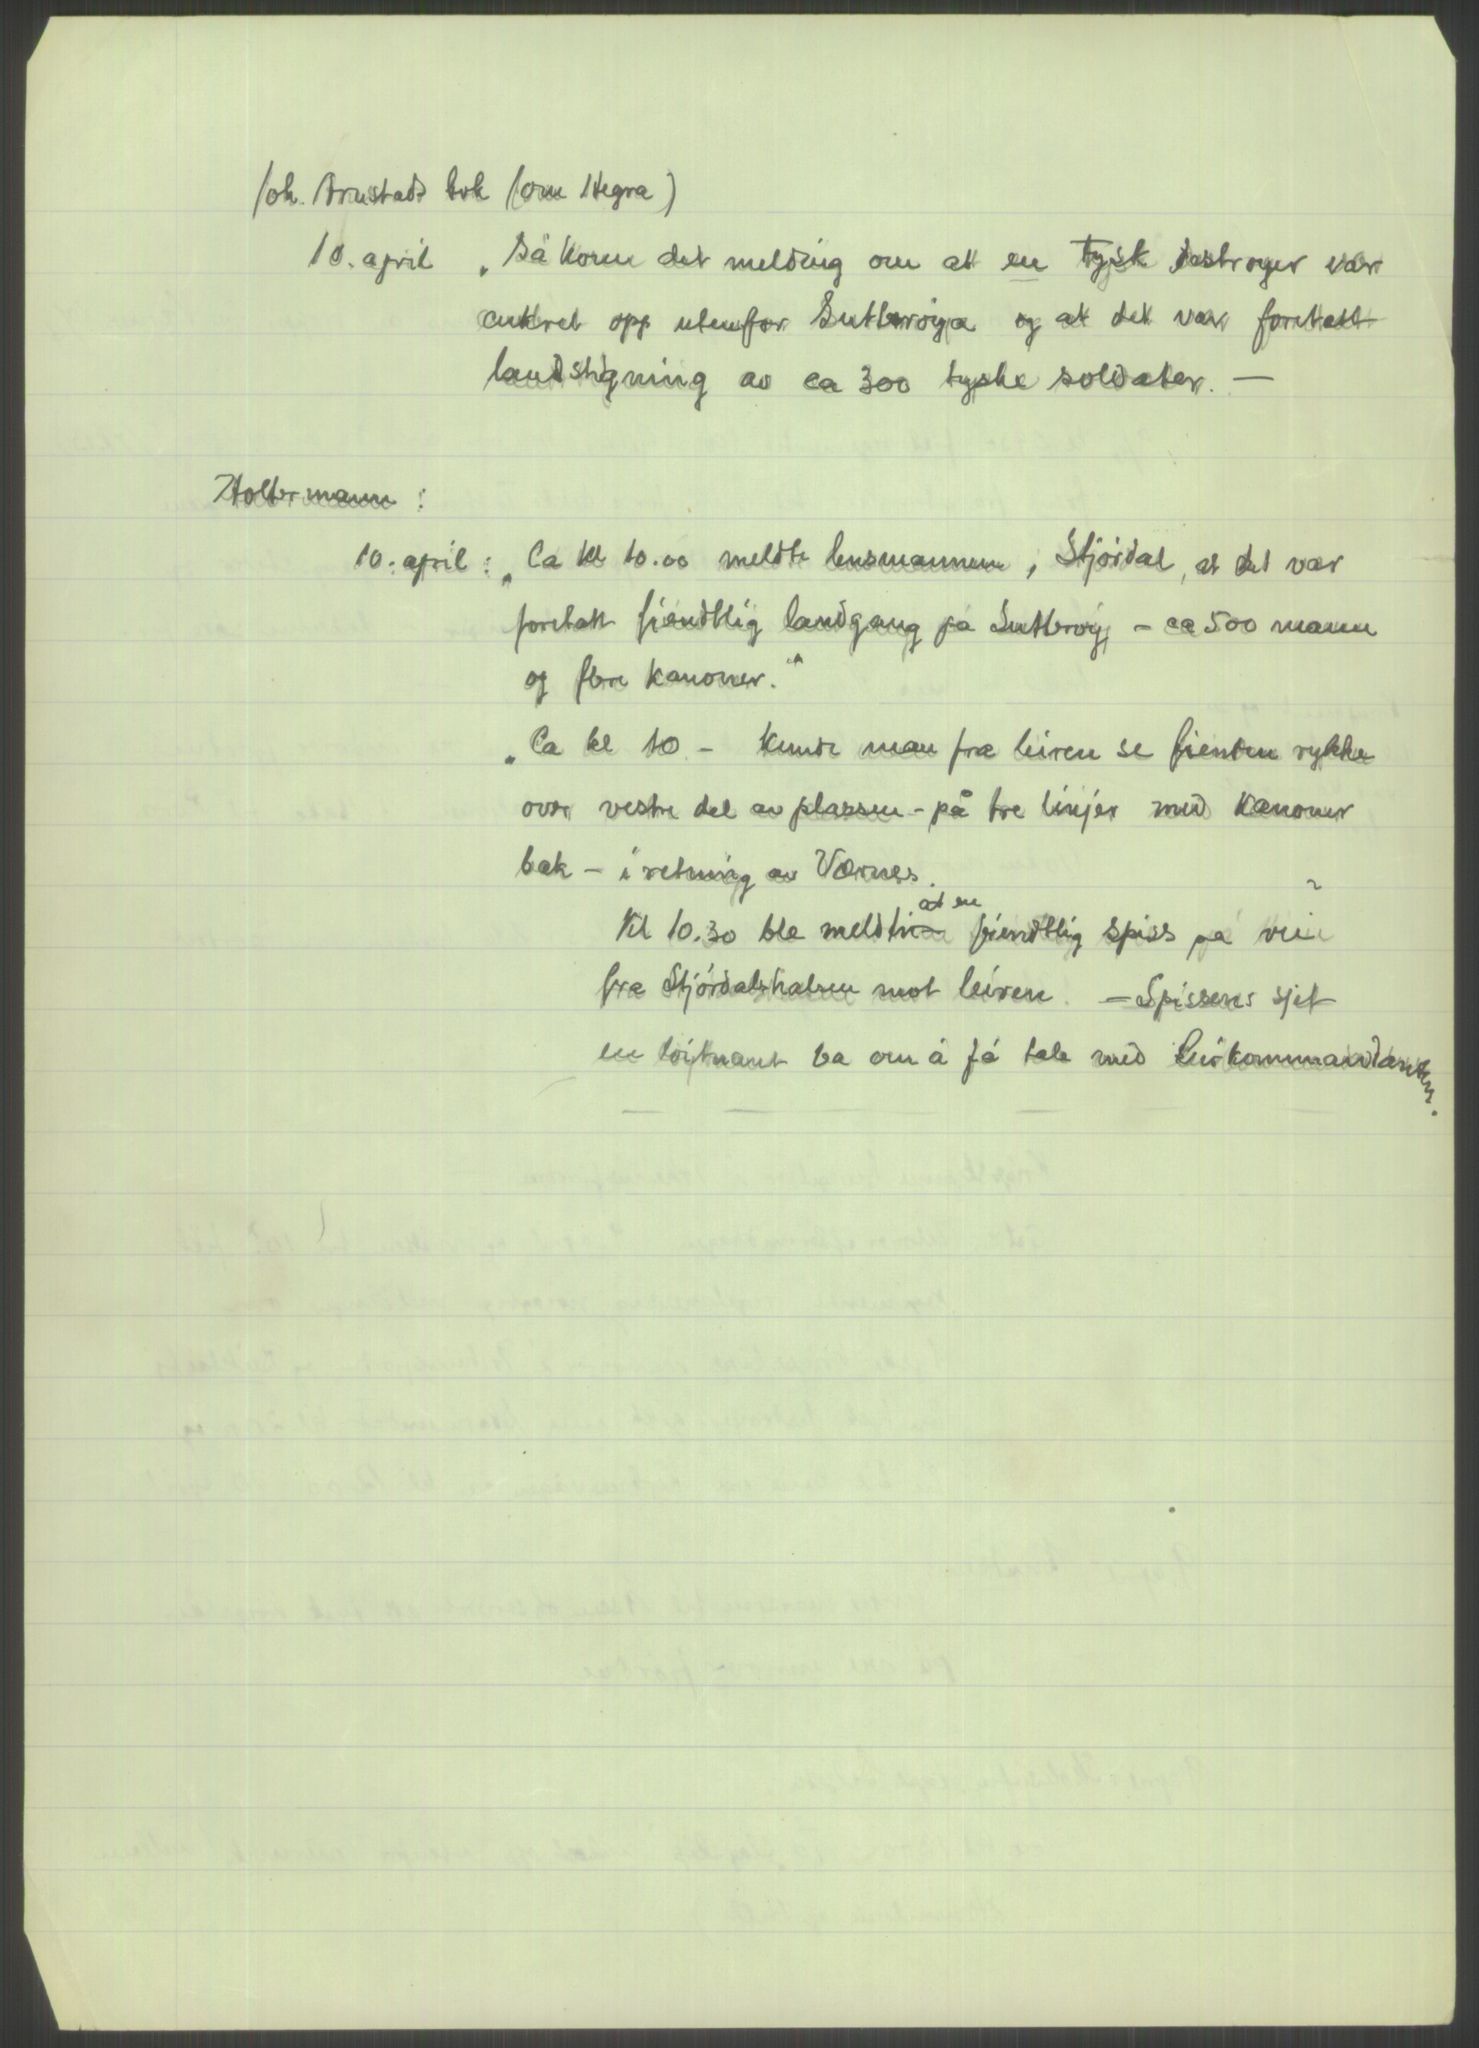 Joh. Arnstads bok (om Hegra)
10. april „Så kom det melding om at en tysk destroyer var
ankret opp utenfor Sutterøya og at det var foretatt
landstigning av ca 300 tyske soldater. —
Holtermann :
10. april : „Ca kl 10.00 meldte lensmannen, Stjørdal, at det var
foretatt fiendtlig landgang på Sutterøy, – ca 500 mann
og flere kanoner."
„Ca kl 10 – kunde man fra leiren se fienden rykke
over vestre del av plassen – på tre linjer med kanoner
bak – i retning av Værnes.
at en
Kl 10.30 ble meldt fiendtlig spiss på vei
fra Stjørdalshalsen mot leiren. – Spissens sjef
en løitnant ba om å få tale med leirkommandanten.